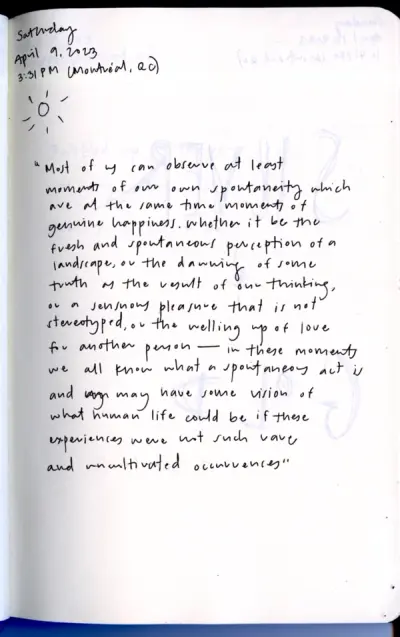 Saturday
April 9, 2023
3:31 PM (Montréal, QC)
"Most of us can observe at least
moments of our own spontaneity which
are at the same time moments of
genuine happiness. Whether it be the
fresh and spontaneous perception of a
landscape, or the dawning of some
truth as the result of our thinking,
or a sensuous pleasure that is not
stereotyped, or the welling up of love
for another person — in these moments
we all know what a spontaneous act is
and may have some vision of
what human life could be if these
experiences were not such rare
and uncultivated occurrences"